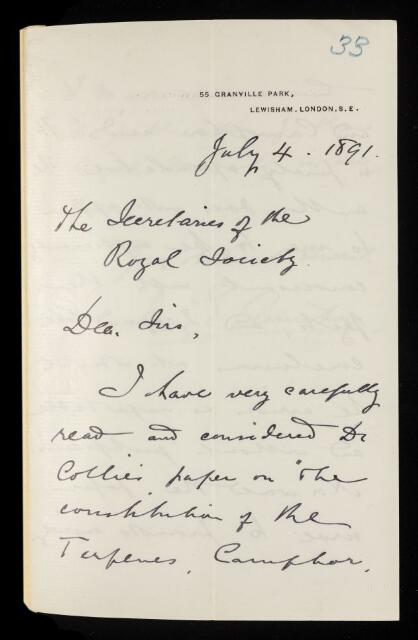 33
55 GRANVILLE PARK,
LEWISHAM. LONDON. S. E.
July 4. 1891.
The Secretaries of the
Royal Society.
Dear Sirs,
I have very carefully
read and considered Dr
Collie's paper on "The
constitution of the
Terpenes, Camphor,